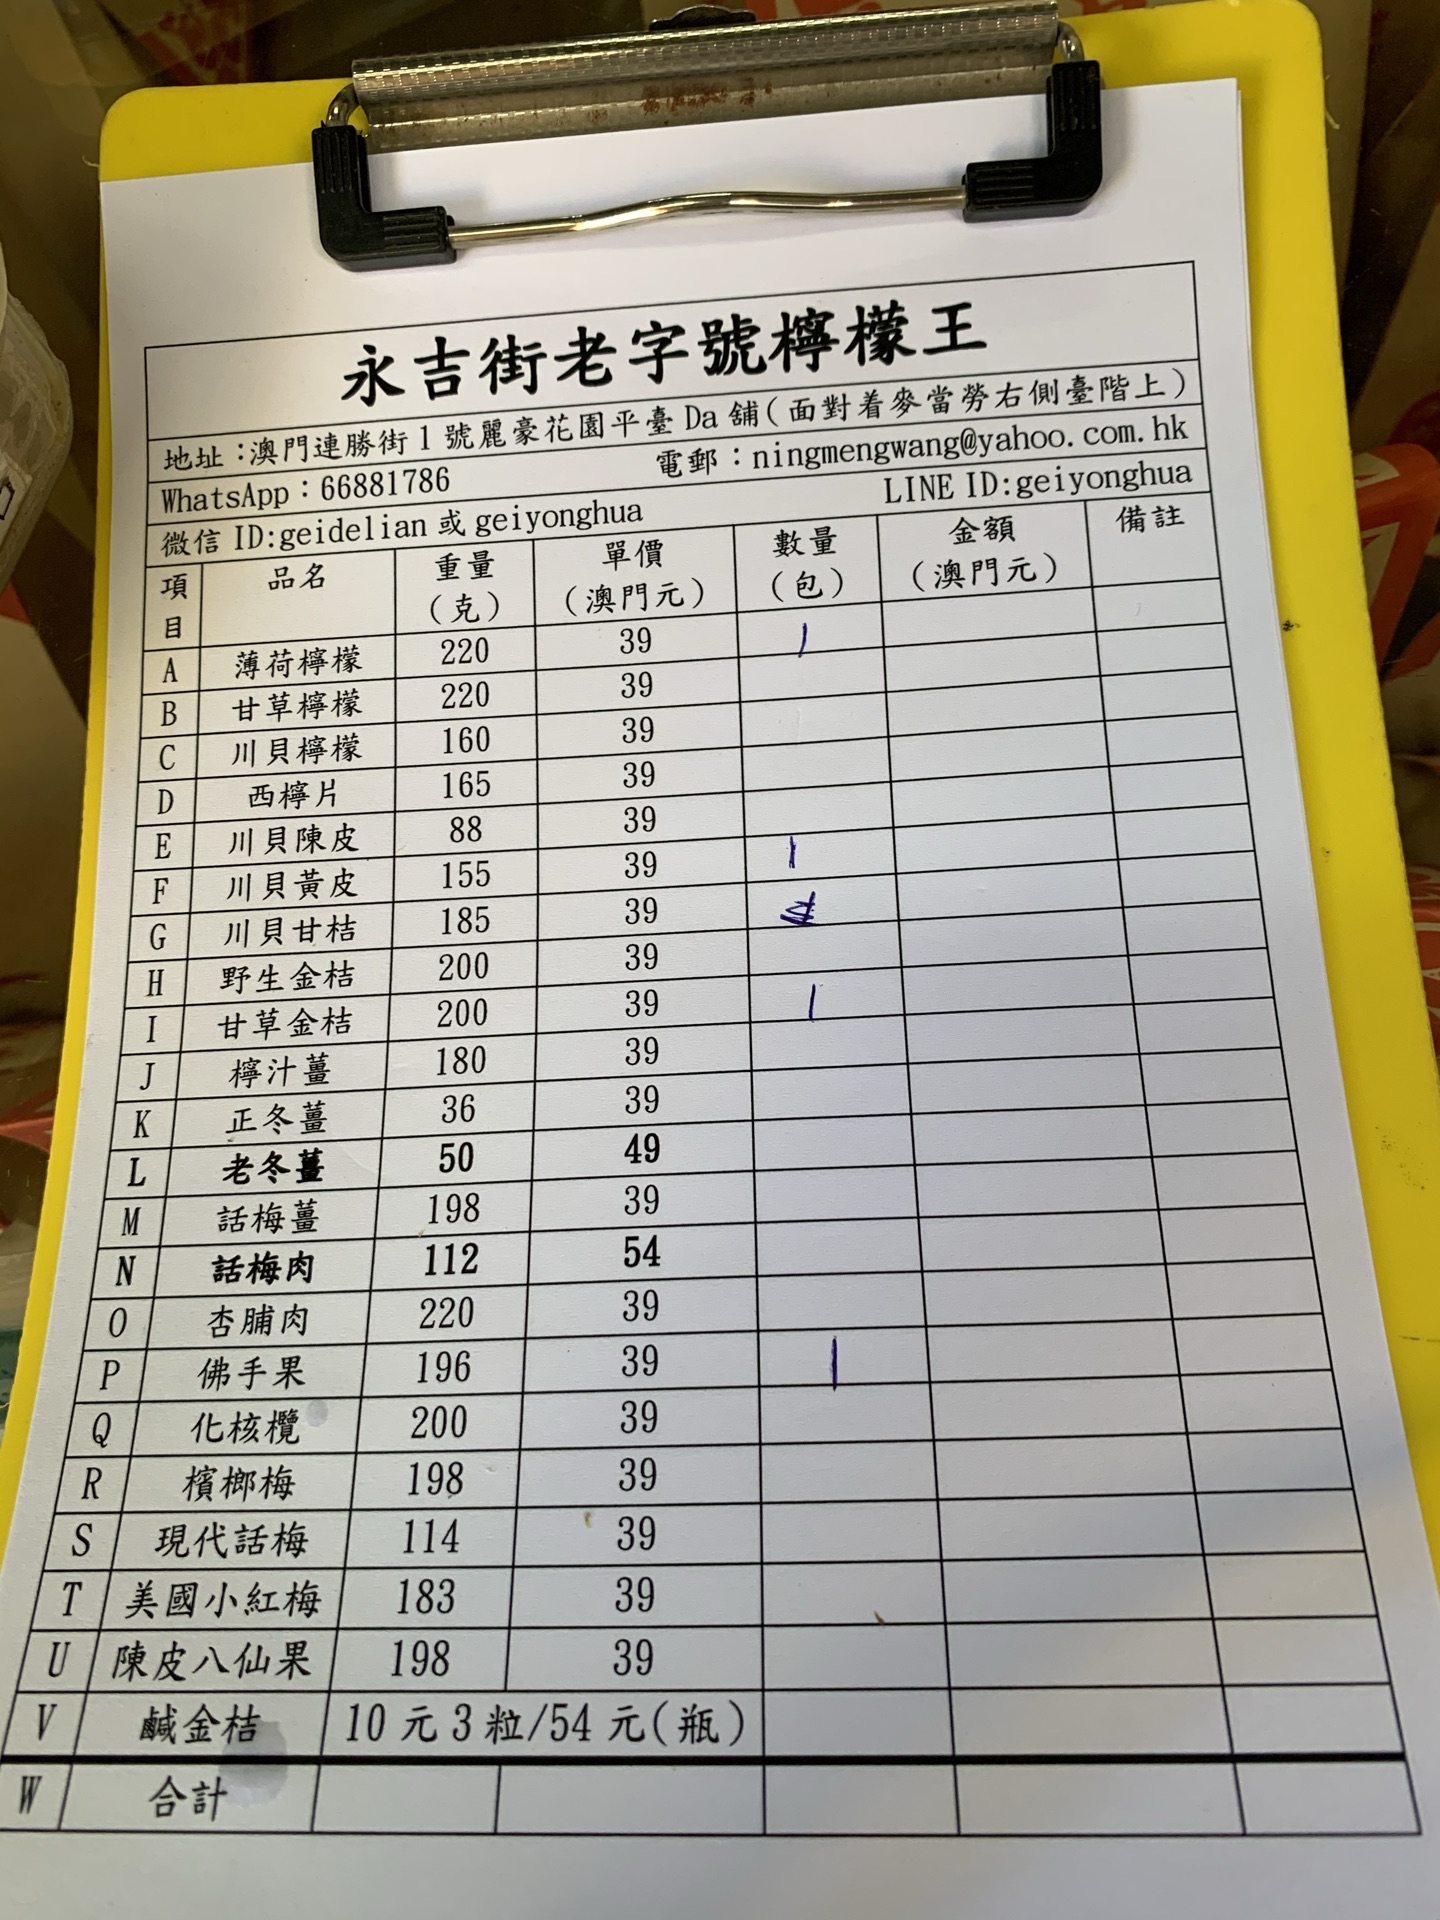 永吉街老字號檸檬王
地址：澳門連勝街1號麗豪花園平臺Da舖（面對着麥當勞右側臺階上）
WhatsApp：66881786 電郵：ningmengwang@yahoo.com.hk
微信 ID:geidelian 或 geiyonghua LINE ID:geiyonghua
項目 品名 重量（克） 單價（澳門元） 數量（包） 金額（澳門元） 備註
A 薄荷檸檬 220 39 1
B 甘草檸檬 220 39
C 川貝檸檬 160 39
D 西檸片 165 39
E 川貝陳皮 88 39
F 川貝黃皮 155 39 1
G 川貝甘桔 185 39
H 野生金桔 200 39
I 甘草金桔 200 39 1
J 檸汁薑 180 39
K 正冬薑 36 39
L 老冬薑 50 49
M 話梅薑 198 39
N 話梅肉 112 54
O 杏脯肉 220 39
P 佛手果 196 39 1
Q 化核欖 200 39
R 檳榔梅 198 39
S 現代話梅 114 39
T 美國小紅梅 183 39
U 陳皮八仙果 198 39
V 鹹金桔 10元3粒/54元(瓶)
W 合計